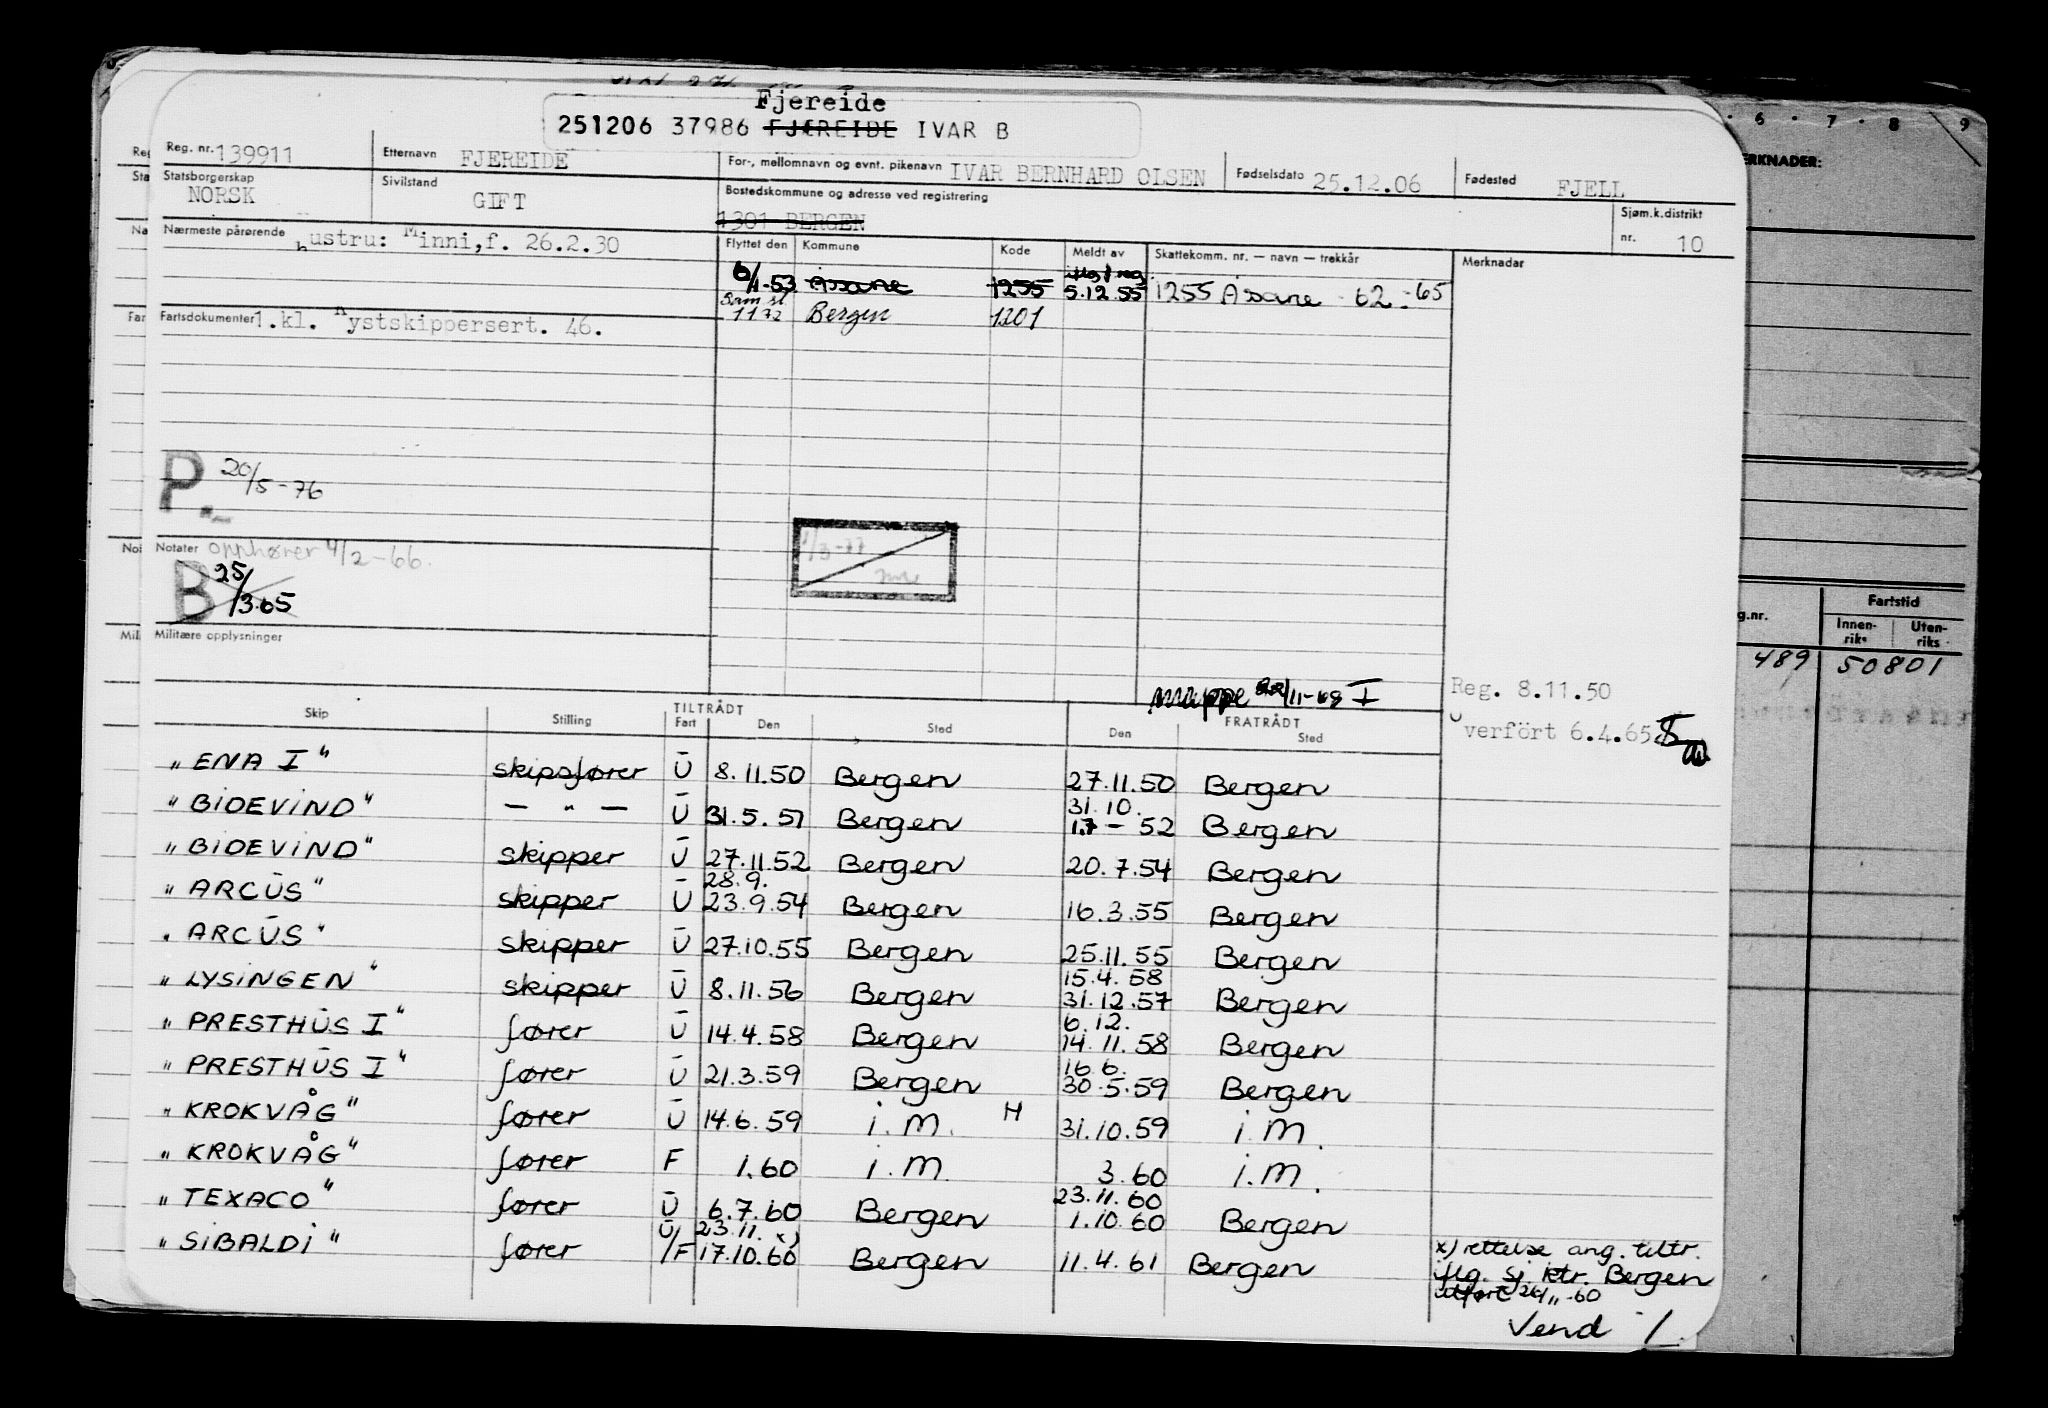 Fjereide
251206 37986 FJÆREIDE IVAR B
Reg. nr. 139911 Etternavn FJEREIDE For-, mellomnavn og evnt. pikenavn IVAR BERNHARD OLSEN Fødselsdato 25.12.06 Fødested FJELL
Statsborgerskap NORSK Sivilstand GIFT Bostedskommune og adresse ved registrering
1301 BERGEN
Sjøm.k.distrikt nr. 10
Nærmeste pårørende hustru: Minni,f. 26.2.30
Flyttet den Kommune Kode Meldt av Skattekomm. nr. — navn — trekkår Merknader
6/1-53 Åsane 1255 5.12.55 1255 Åsane 62-65
1172 Bergen 1201
Fartsdokumenter 1.kl. Kystskippersert. 46.
P 20/5-76
Notater opphører 4/2-66.
B 25/3.65
1/3-77
Militære opplysninger
mappe 22/11-68 I
Reg. 8.11.50
Overfört 6.4.65
TILTRÅDT FRATRÅDT
Skip Stilling Fart Den Sted Den Sted
"ENA I" skipsfører U 8.11.50 Bergen 27.11.50 Bergen
31.10.
"BIDEVIND" — " — U 31.5.51 Bergen 1.7-52 Bergen
"BIDEVIND" skipper U 27.11.52 Bergen 20.7.54 Bergen
28.9.
"ARCUS" skipper U 23.9.54 Bergen 16.3.55 Bergen
"ARCUS" skipper U 27.10.55 Bergen 25.11.55 Bergen
15.4.58
"LYSINGEN" skipper U 8.11.56 Bergen 31.12.57 Bergen
6.12.
"PRESTHUS I" fører U 14.4.58 Bergen 14.11.58 Bergen
16.6.
"PRESTHUS I" fører U 21.3.59 Bergen 30.5.59 Bergen
"KROKVÅG" fører U 14.6.59 i.M. H 31.10.59 i.M.
"KROKVÅG" fører F 1.60 i.M. 3.60 i.M.
23.11.60
"TEXACO" fører U 6.7.60 Bergen 1.10.60 Bergen
23.11. x)
"SIBALDI" fører U/F 17.10.60 Bergen 11.4.61 Bergen
x) rettelse ang. tiltr.
iflg. sj. ktr. Bergen
utført 26/11-60
Vend ./.
6 7 8 9
ERKNADER:
g.nr. Fartstid
Innenriks Utenriks
489 50801